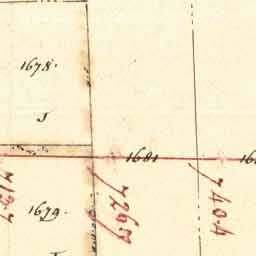 1678.
J
1681
1679.
7267
7404